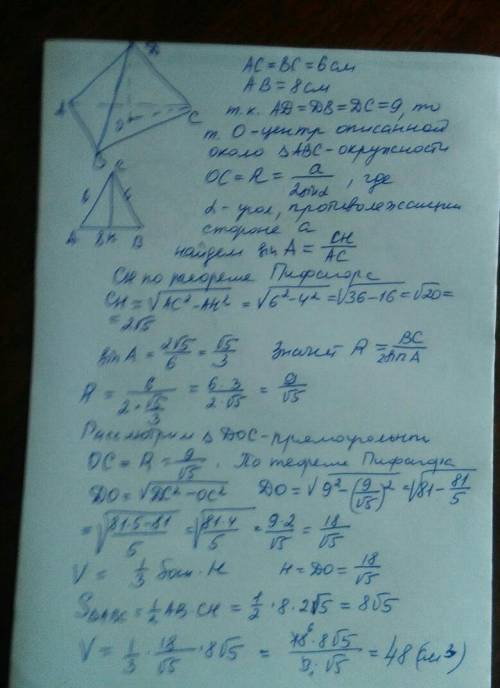 D
A
C
O
B
AC = BC = 6 см
AB = 8 см
т.к. AD = DB = DC = 9, то
т. O - центр описанной
около △ABC - окружности
OC = R = a / 2sinα, где
α - угол, противолежащий
стороне a
C
6 6
A 8 H B
найдем sin A = CH / AC
CH по теореме Пифагора
CH = √AC² - AH² = √6² - 4² = √36 - 16 = √20 =
= 2√5
sin A = 2√5 / 6 = √5 / 3 Значит R = BC / 2sin A
R = 6 / 2 · √5/3 = 6·3 / 2·√5 = 9 / √5
Рассмотрим △ DOC - прямоугольный
OC = R = 9 / √5. По теореме Пифагора
DO = √DC² - OC² DO = √9² - (9/√5)² = √81 - 81/5
= √81·5 - 81 / 5 = √81·4 / 5 = 9·2 / √5 = 18 / √5
V = 1/3 Sосн · H H = DO = 18 / √5
S△ABC = 1/2 AB · CH = 1/2 · 8 · 2√5 = 8√5
V = 1/3 · 18/√5 · 8√5 = 18 · 8√5 / 3 · √5 = 48 (см³)